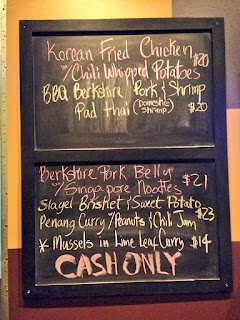 Korean Fried Chicken $20
w/Chili Whipped Potatoes
BBQ Berkshire Pork & Shrimp
Pad thai (Domestic Shrimp) $20
Berkshire Pork Belly
w/Singapore Noodles $21
Slagel Brisket & Sweet Potato
Penang Curry w/Peanuts & Chili Jam $23
* Mussels in Lime Leaf Curry $14
CASH ONLY